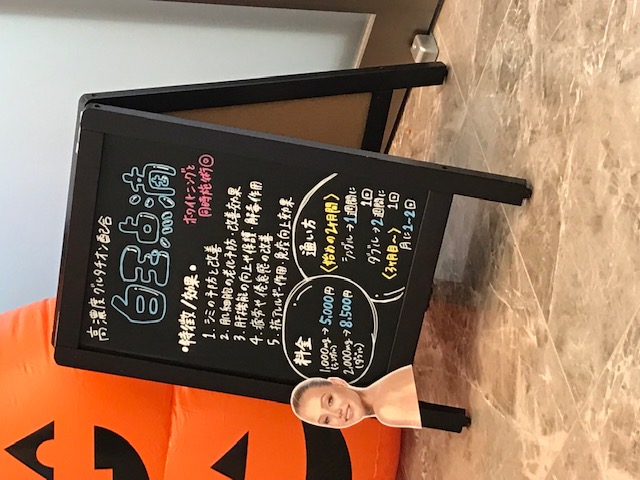 高濃度グルタチオン配合
白玉点滴
ホワイトニングと
同時施術◎
•特徴/効果•
1. シミの予防と改善
2. 肌細胞の老化予防・改善効果
3. 肝機能の向上や保護・解毒作用
4. 疲労や倦怠感の改善
5. 抗アレルギー作用・免疫向上効果
料金
1,000mg→5,000円
(シングル)
2,000mg→8,500円
(ダブル)
通い方
〈始めの2ヶ月間〉
シングル→1週間に
1回
ダブル→2週間に
1回
〈3ヶ月目〜〉
月に1~2回